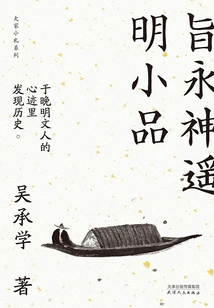 大家小札系列
旨永神遥
明小品
于晚明文人的
心迹里
发现历史。
吴承学 著
天津出版传媒集团
天津人民出版社